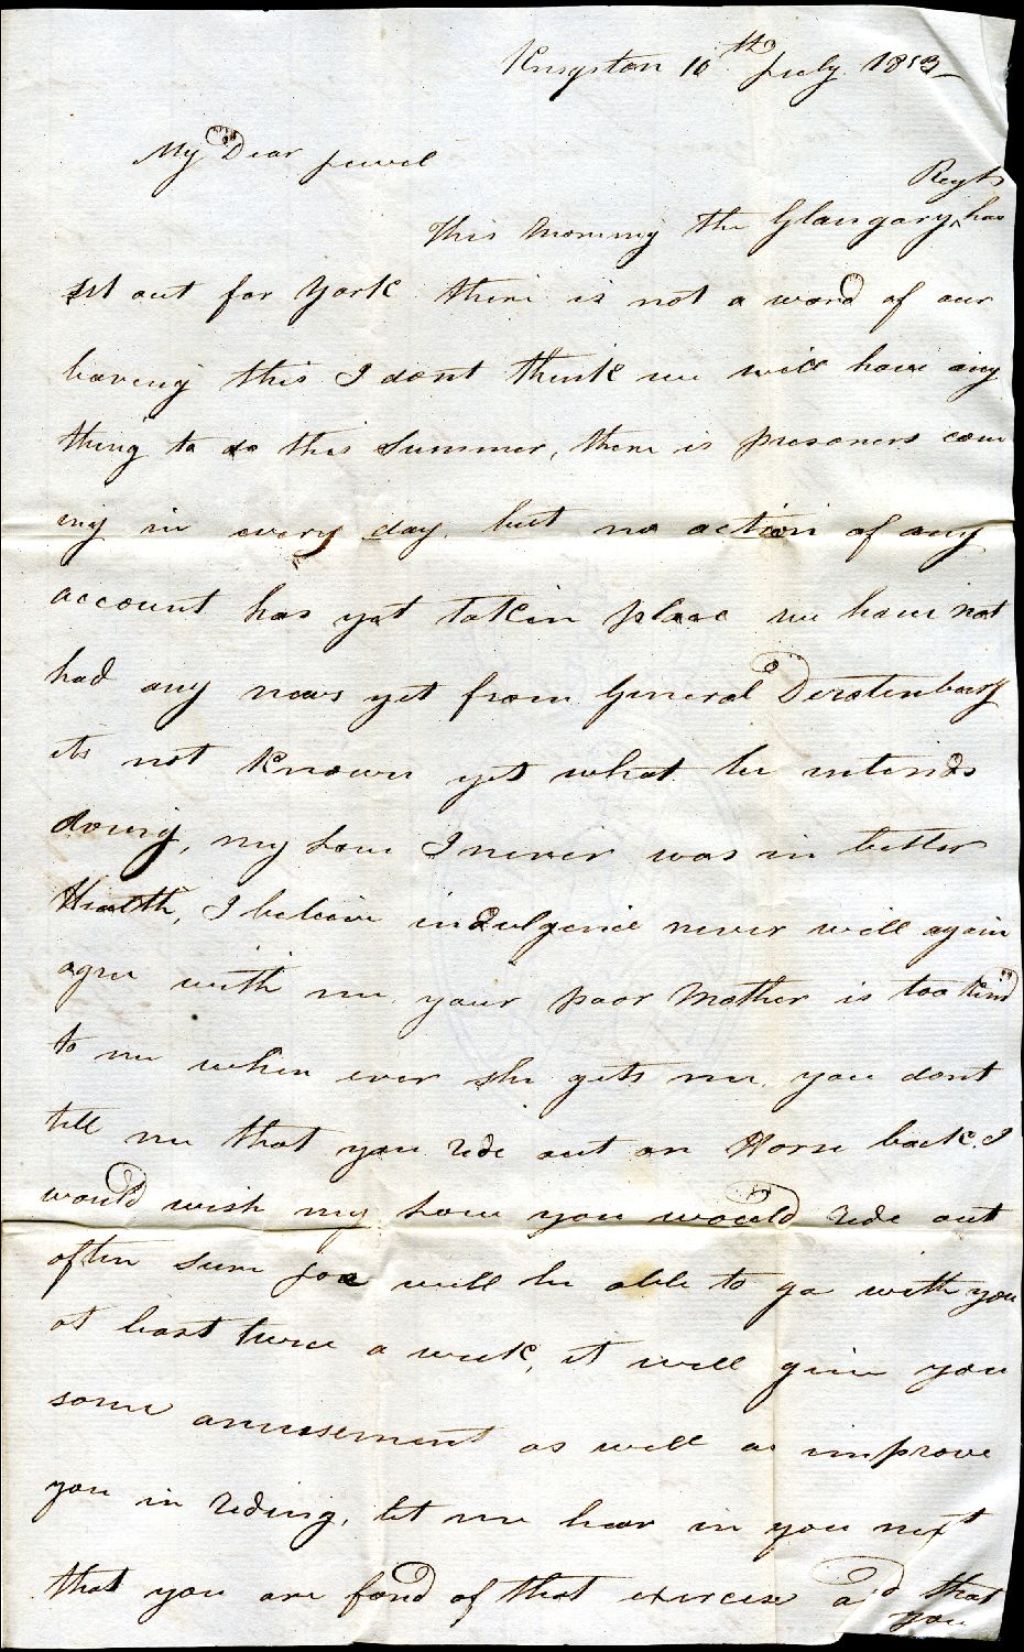 Kingston 10th July 1813
My Dear Jewel
Regt
This Morning the Glangary ^ has
set out for York there is not a word of our
leaving this I dont think we will have any
thing to do this Summer, there is presoners com
ing in every day, but no action of any
account has yet takin place we have not
had any news yet from General Derotenburg
its not known yet what he intends
doing, my Love I never was in better
Health, I beleive indulgence never will again
agree with me, your poor Mother is too kind
to me when ever she gets me, you dont
tell me that you ride out on Horse back. I
would wish my Love you would ride out
often sure Joe will be able to go with you
at least twice a week, it will give you
some amusement as well as improve
you in riding, let me hear in you next
that you are fond of that exercise and that
you